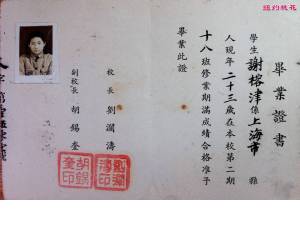 纽约桃花
畢業證書
學生謝榕津係上海市 縣
人現年二十三歲在本校第二期
十八班修業期滿成績合格准予
畢業此證
校長 劉瀾濤
副校長 胡錫奎
胡錫奎印